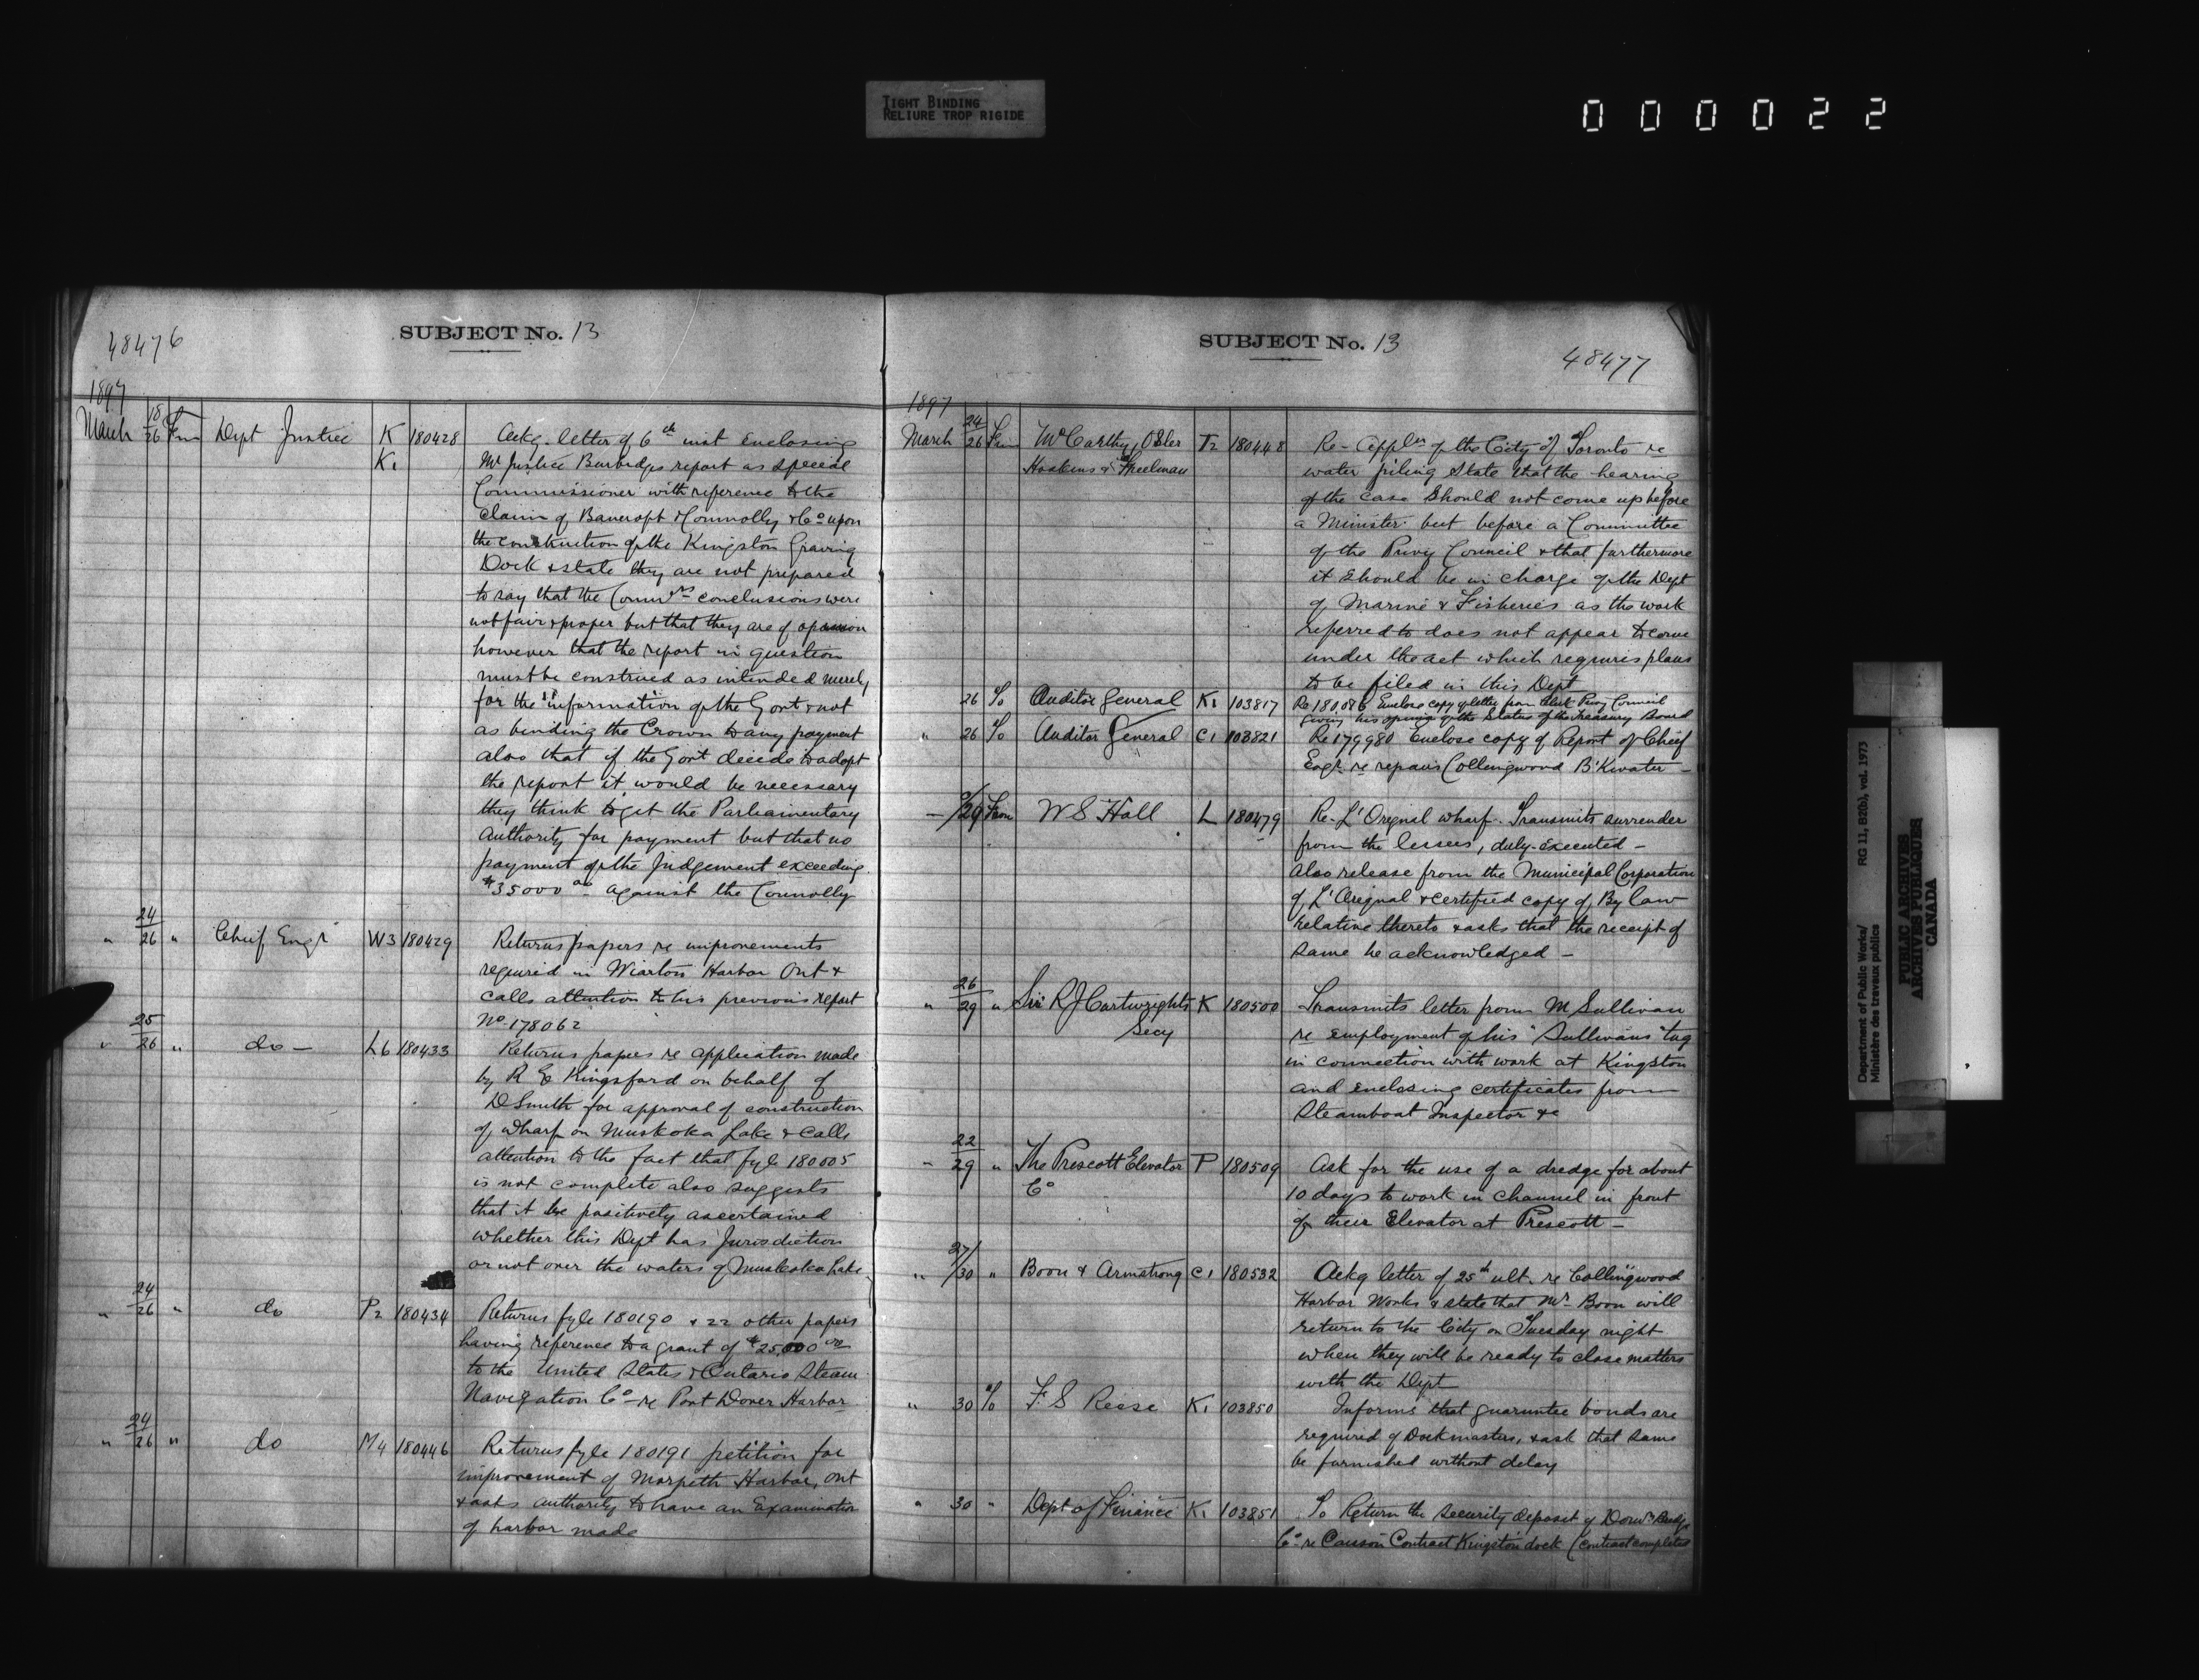 TIGHT BINDING
RELIURE TROP RIGIDE
000022
48476
SUBJECT No. 13
1897
March 18/26 From Dept Justice K K1 180428 Ackg. letter of 6th inst enclosing
Mr Justice Burbidges report as special
Commissioner with reference to the
claim of Bancroft Connolly & Co upon
the construction of the Kingston Graving
Dock & state they are not prepared
to say that the Commrs conclusions were
not fair & proper but that they are of opinion
however that the report in question
must be construed as intended merely
for the "information" of the Govt & not
as binding the Crown to any payment
also that if the Govt decide to adopt
the report it would be necessary
they think to get the Parliamentary
authority for payment but that no
payment of the Judgement exceeding
$35000 00 against the Connolly
" 24/26 " Chief Engr W3 180429 Returns papers re improvements
required in Wiarton Harbor Ont &
calls attention to his previous report
No 178062
" 25/26 " do — L6 180433 Returns papers re application made
by R E Kingsford on behalf of
D Smith for approval of construction
of wharf on Muskoka Lake & calls
attention to the fact that fyle 180005
is not complete also suggests
that it be positively ascertained
whether this Dept has Jurisdiction
or not over the waters of Muskoka Lake
" 24/26 " do P2 180434 Returns fyle 180190 & 22 other papers
having reference to a grant of $25,000 00
to the United States & Ontario Steam
Navigation Co re Port Dover Harbor
" 24/26 " do M4 180446 Returns fyle 180191 petition for
improvement of Morpeth Harbor, Ont
& asks authority to have an Examination
of harbor made
SUBJECT No. 13
48477
1897
March 24/26 From McCarthy, Osler Hoskins & Creelman T2 180448 Re- Applon of the City of Toronto re
water piling State that the hearing
of the case should not come up before
a Minister but before a Committee
of the Privy Council & that furthermore
it should be in charge of the Dept
of Marine & Fisheries as the work
referred to does not appear to come
under the act which requires plans
to be filed in this Dept
26 To Auditor General K1 103817 Re 180086 Enclose copy of letter from Clerk Privy Council
giving his opinion of the Status of the Treasury Board
" 26 To Auditor General C1 103821 Re 179980 Enclose copy of Report of Chief
Engr. re repairs Collingwood B'Kwater —
/29 From W S Hall L 180479 Re- L'Orignal wharf. Transmits surrender
from the lessees, duly executed —
also release from the Municipal Corporation
of L'Orignal & certified copy of By law
relative thereto & asks that the receipt of
same be acknowledged —
" 26/29 " Sir R J Cartwrights Secy K 180500 Transmits letter from M Sullivan
re employment of his "Sullivans" tug
in connection with work at Kingston
and enclosing certificates from
Steamboat Inspector &c
" 22/29 " The Prescott Elevator Co P 180509 Ask for the use of a dredge for about
10 days to work in channel in front
of their Elevator at Prescott —
" 27/30 " Boon & Armstrong C1 180532 Ackg letter of 25th ult. re Collingwood
Harbor Works & state that Mr Boon will
return to the City on Tuesday night
when they will be ready to close matters
with the Dept
" 30 To F S Rees K1 103850 Informs that guarantee bonds are
required of Dockmasters, & ask that same
be furnished without delay
" 30 " Dept of Finance K1 103851 To Return the security deposit of Domn Bridge
Co re Caisson Contract Kingston dock (contract completed
Department of Public Works/ RG 11, B2(b), vol. 1973
Ministère des travaux publics
PUBLIC ARCHIVES
ARCHIVES PUBLIQUES
CANADA